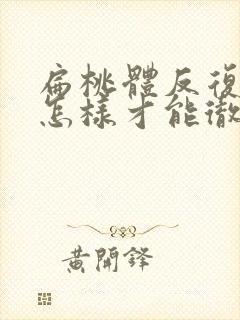 扁桃體反復
怎樣才能徹
黄開鋒